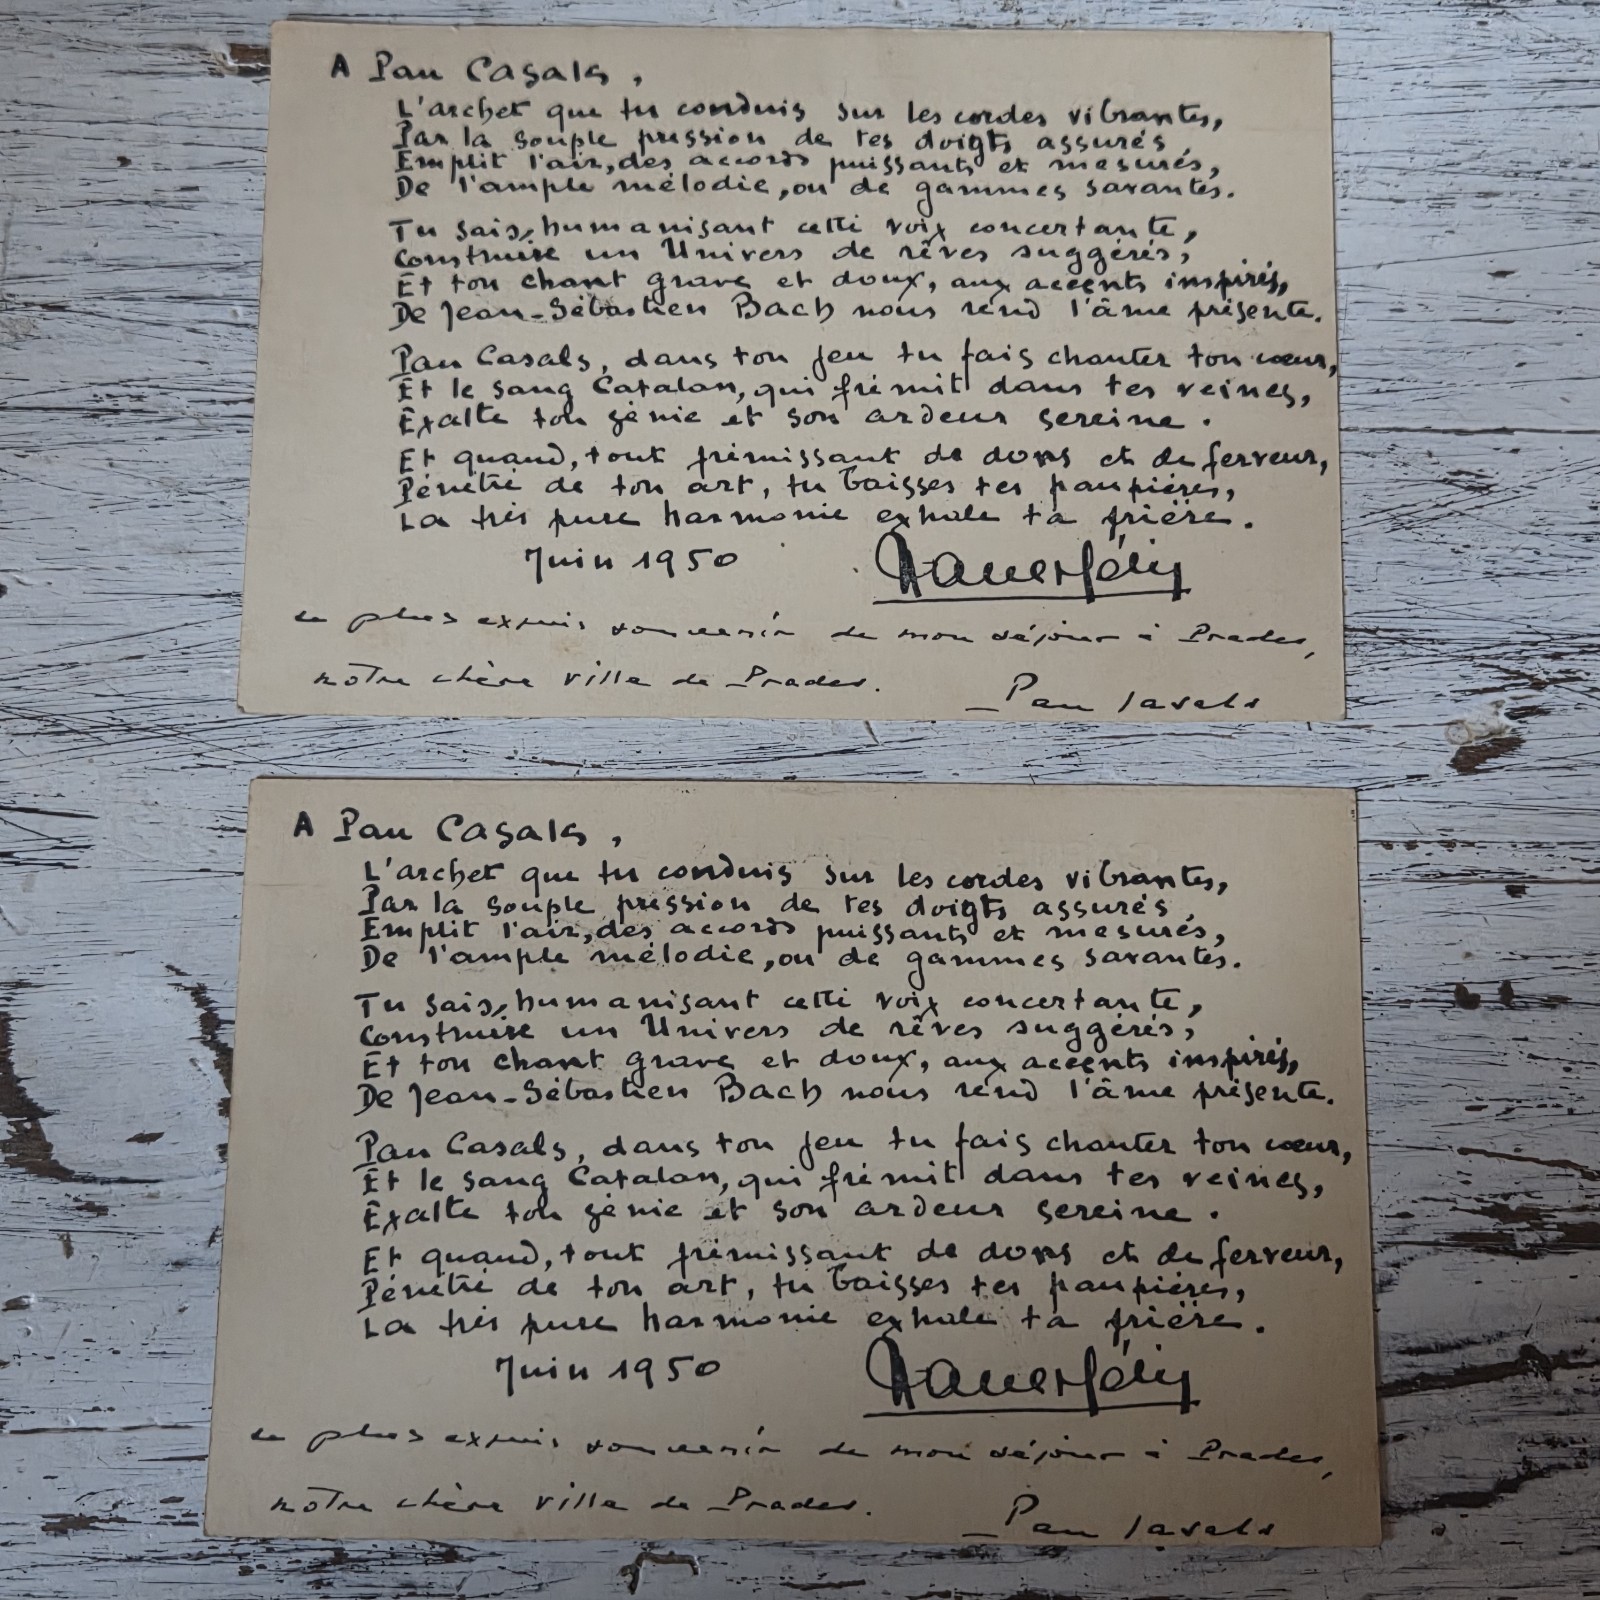 A Pau Casals,
L'archet que tu conduis sur les cordes vibrantes,
Par la souple pression de tes doigts assurés,
Emplit l'air, des accords puissants et mesurés,
De l'ample mélodie, ou de gammes savantes.
Tu sais, humanisant cette voix concertante,
Construire un Univers de rêves suggérés,
Et ton chant grave et doux, aux accents inspirés,
De Jean-Sébastien Bach nous rend l'âme présente.
Pau Casals, dans ton jeu tu fais chanter ton cœur,
Et le sang Catalan, qui frémit dans tes veines,
Exalte ton génie et son ardeur sereine.
Et quand, tout frémissant de dons et de ferveur,
Pénétré de ton art, tu baisses tes paupières,
La très pure harmonie exhale ta prière.
Juin 1950
plus exquis souvenir de mon séjour à Prades,
notre chère ville de Prades.
Pau Casals
A Pau Casals,
L'archet que tu conduis sur les cordes vibrantes,
Par la souple pression de tes doigts assurés,
Emplit l'air, des accords puissants et mesurés,
De l'ample mélodie, ou de gammes savantes.
Tu sais, humanisant cette voix concertante,
Construire un Univers de rêves suggérés,
Et ton chant grave et doux, aux accents inspirés,
De Jean-Sébastien Bach nous rend l'âme présente.
Pau Casals, dans ton jeu tu fais chanter ton cœur,
Et le sang Catalan, qui frémit dans tes veines,
Exalte ton génie et son ardeur sereine.
Et quand, tout frémissant de dons et de ferveur,
Pénétré de ton art, tu baisses tes paupières,
La très pure harmonie exhale ta prière.
Juin 1950
plus exquis souvenir de mon séjour à Prades,
notre chère ville de Prades.
Pau Casals